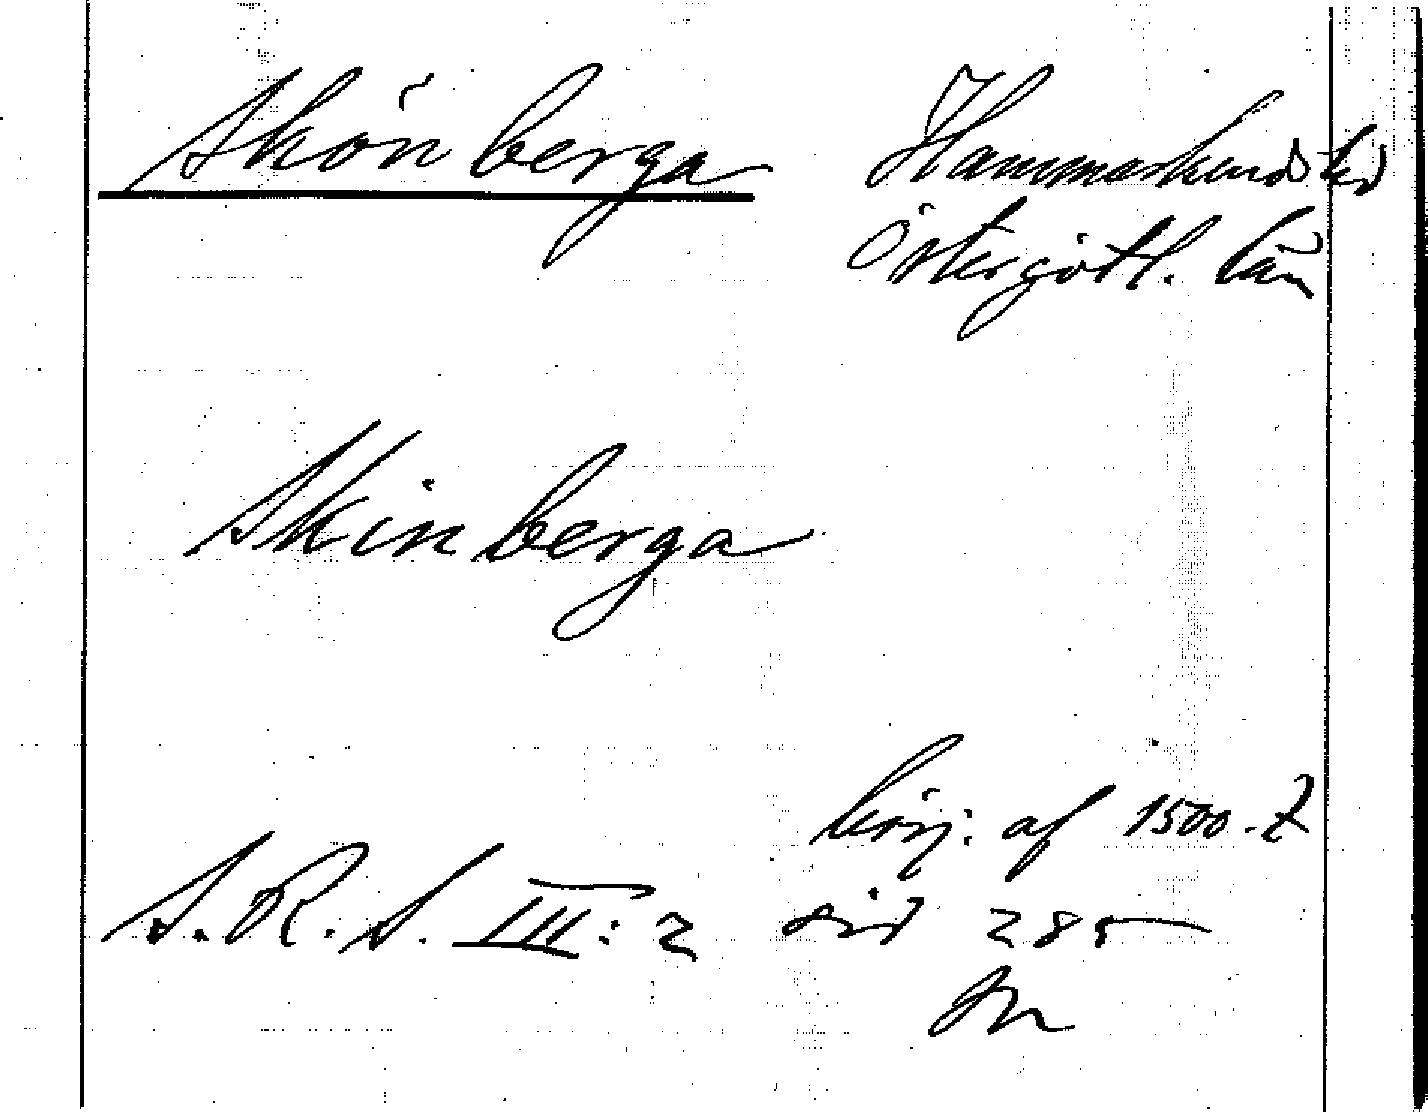 Skönberga Hammarkinds hd
Östergötl. län
Skinberga
börj. af 1500-t
S.R.S. III:2 sid 285